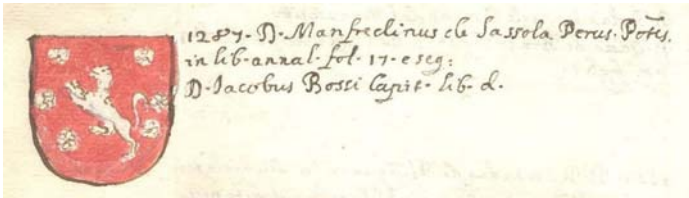 1287. D. Manfredinus de Sassola Perus. Potēs.
in lib. annal. fol. 17. e seg:
D. Jacobus Rossi Capit. lib. d.